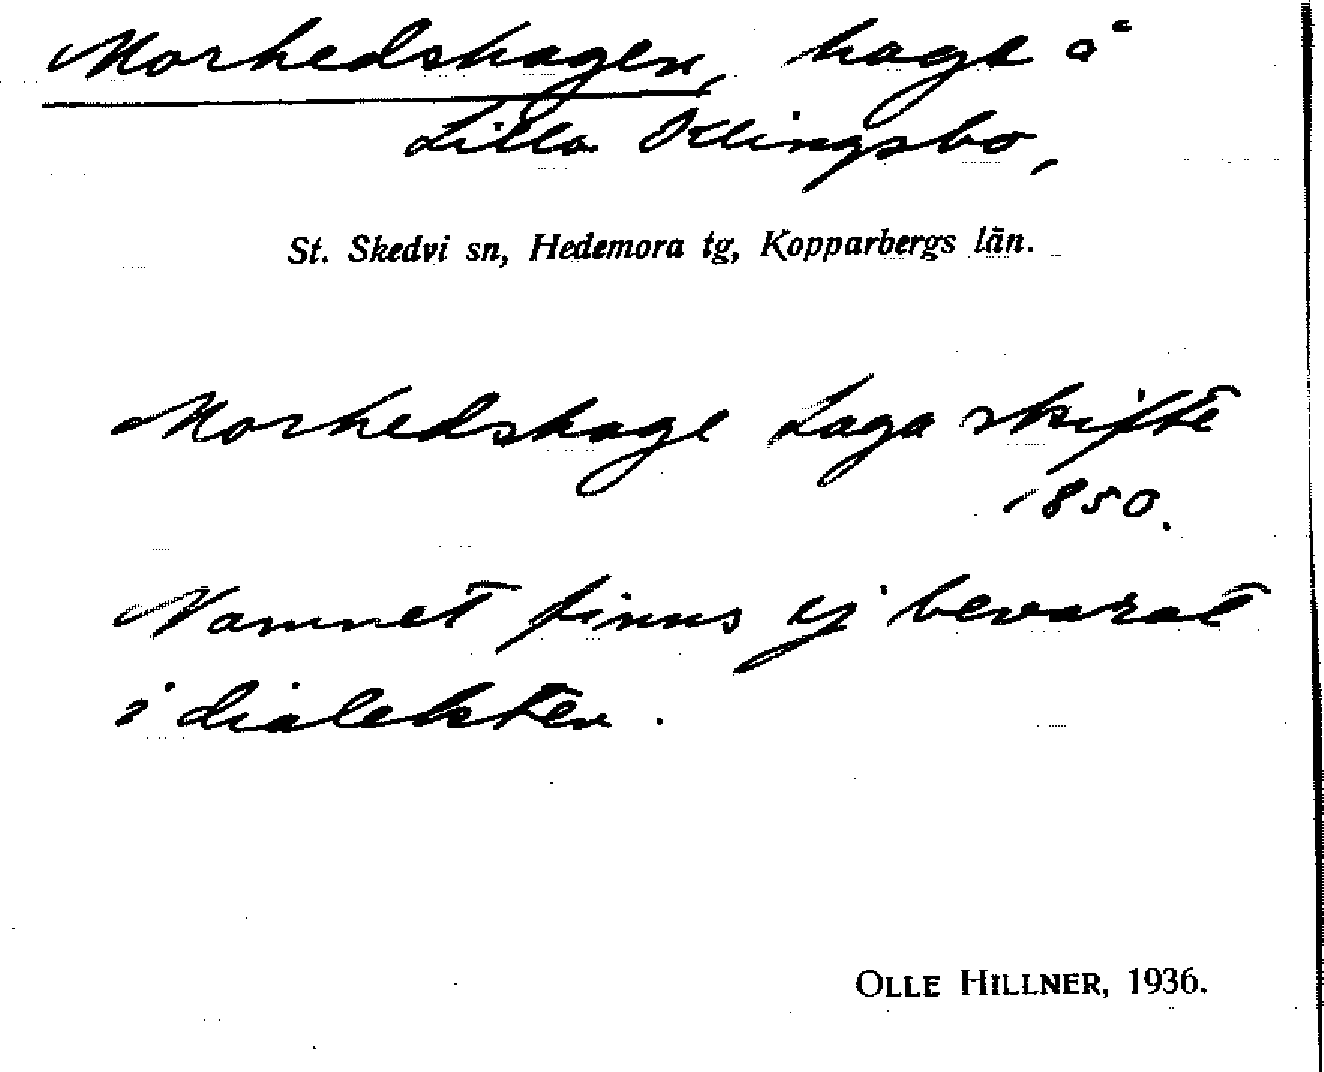 Morhedshagen, hage å
Lilla Klingsbo,
St. Skedvi sn, Hedemora tg, Kopparbergs län.
Morhedshage Laga skifte
1850.
Namnet finns ej bevarat
i dialekten.
OLLE HILLNER, 1936.